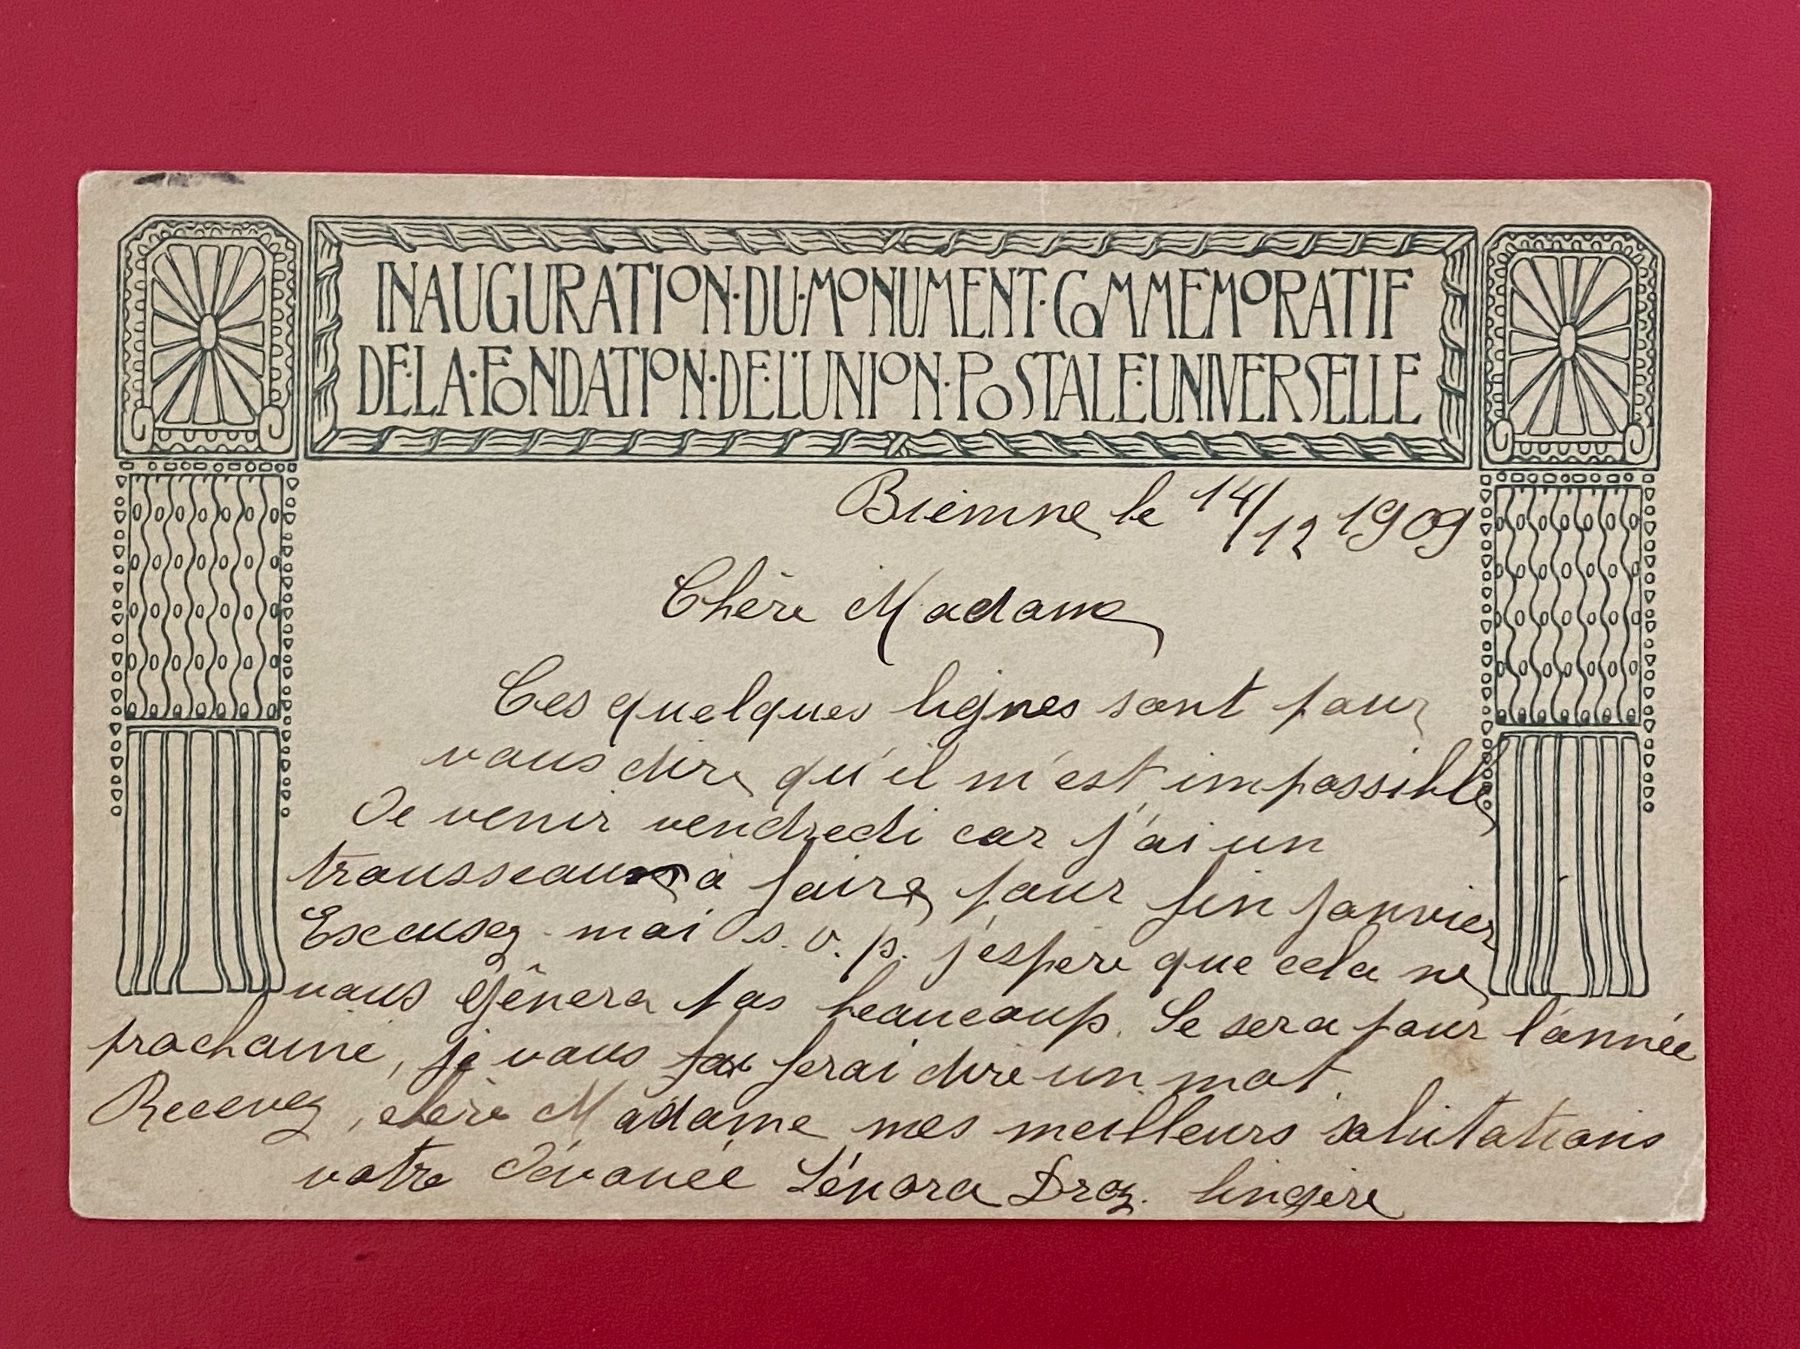 INAUGURATION·DU·MONUMENT·COMMEMORATIF
DE·LA·FONDATION·DE·L'UNION·POSTALE·UNIVERSELLE
Bienne le 14/12 1909
Chère Madame
Ces quelques lignes sont pour
vous dire qu'il m'est impossible
de venir vendredi car j'ai un
trousseau à faire pour fin janvier
Excusez-moi s.v.p. j'espère que cela ne
vous gênera pas beaucoup. Se sera pour l'année
prochaine, je vous ferai dire un mot.
Recevez, chère Madame mes meilleurs salutations
votre dévouée Lénora Droz. lingère